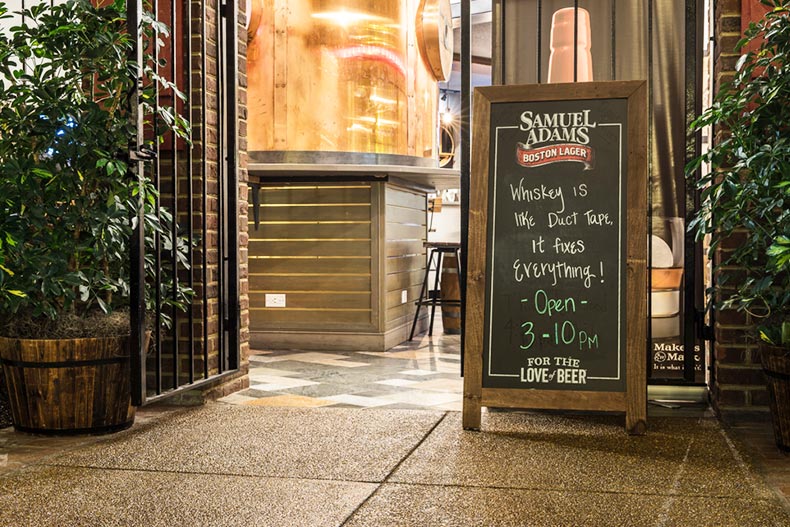 SAMUEL
ADAMS
BOSTON LAGER
Whiskey is
like Duct Tape,
it fixes
Everything!
- Open -
3-10 PM
FOR THE
LOVE of BEER
Maker's
Mark
It is what it